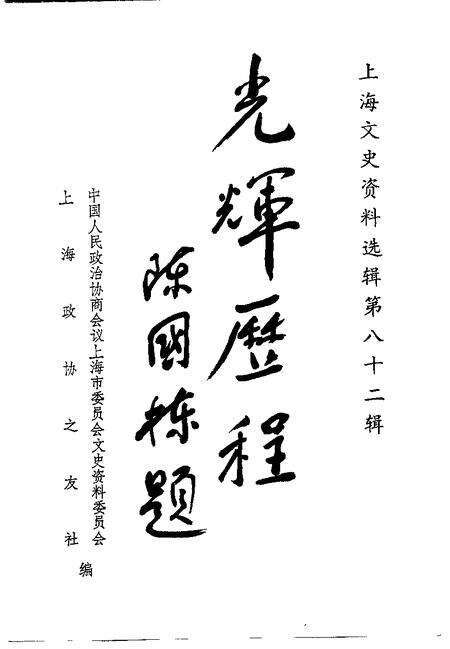 上海文史资料选辑第八十二辑
光輝歷程
陈國栋題
中国人民政治协商会议上海市委员会文史资料委员会
上海政协之友社
编